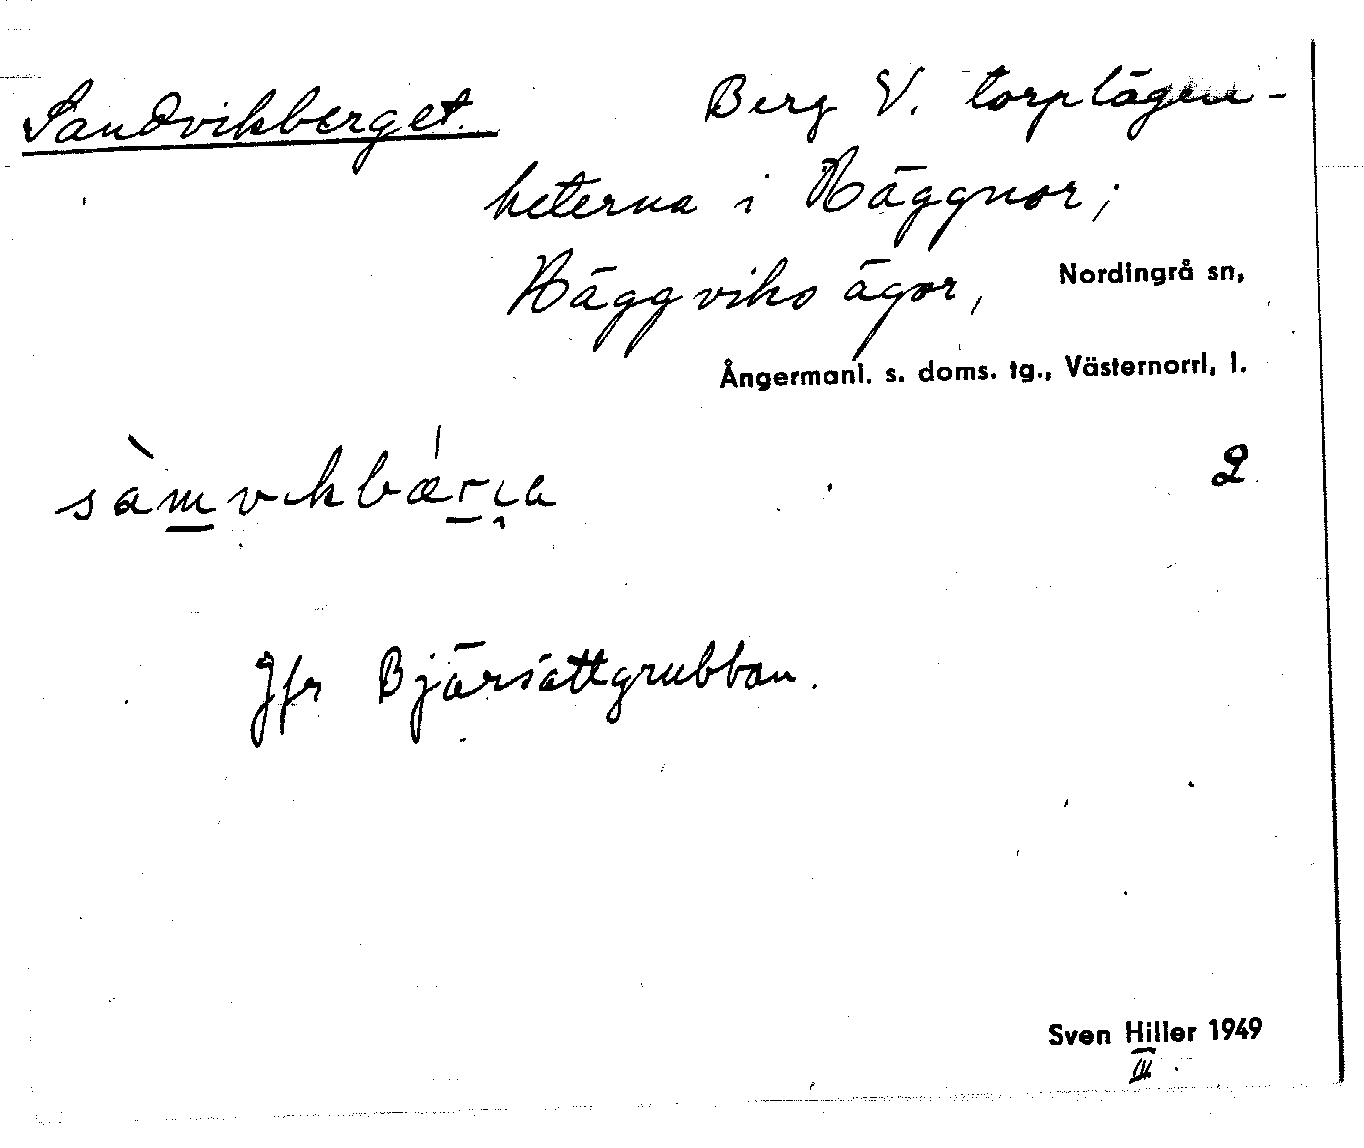 Sandvikberget. Berg V. torplägen-
heterna i Häggnor;
Häggviks ägor, Nordingrå sn,
Ångermanl. s. doms. tg., Västernorrl, l.
2
Jfr Bjärsättgrubban.
Sven Hiller 1949